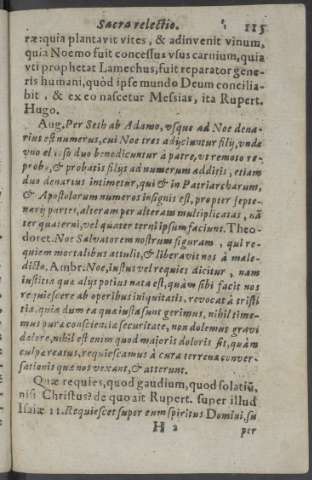 Sacra relectio. 115
ræ: quia plantavit vites, & adinvenit vinum,
quia Noemo fuit concessus vsus carnium, quia
vti prophetat Lamechus, fuit reparator gene-
ris humani, quòd ipse mundo Deum concilia-
bit, & ex eo nascetur Messias, ita Rupert.
Hugo.
Aug. Per Seth ab Adamo, vsque ad Noe dena-
rius est numerus, cui Noe tres adyciuntur filij, vnde
vno el duo benedicuntur à patre, vt remoto re-
probo, & probatis filijs ad numerum additis, etiam
duo denarius intimetur, qui & in Patriarcharum,
& Apostolorum numeros insignis est, propter septe-
nerij partes, alteram per alteram multiplicatas, nã
ter quaterni, vel quater terni ipsum faciunt. Theo-
doret. Noe Salvatorem nostrum figuram, qui re-
quiem mortalibus attulit, & liberavit nos à male-
dicto. Ambr. Noe, iustus vel requies dicitur, nam
iustitia quæ alys potius nata est, quàm sibi facit nos
requiescere ab operibus iniquitatis, revocat à tristi-
tia, quia dum ea qua iusta sunt gerimus, nihil time-
mus pura conscientiæ securitate, non dolemus gravi
dolore, nihil est enim quod majoris doloris sit, quàm
culpæ reatus, requiescamus à cura terrena conver-
sationis quæ nos vexant, & atterunt.
Quæ requies, quod gaudium, quod solatiũ,
nisi Christus? de quo ait Rupert. super illud
Isaiæ 11. Requiescet super eum spiritus Domini, sũ
H 2 per